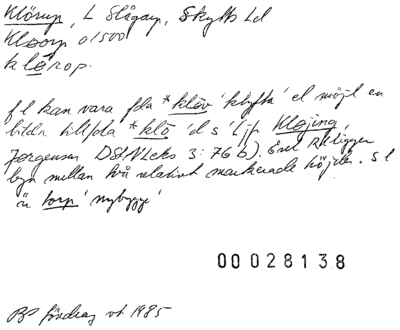 Klörup, L Slågarp, Skytts hd
Kloorp o/500
klörop.
fl kan vara fda *klöv 'klyfta' el möjl en
bildn till fda *klō 'd s' (jfr Kløjing,
Jørgensen DStNLeks 3:76 b). Enl RK ligger
byn mellan två relativt markerade höjder. s l
är torp 'nybygge'
00028138
BP fördrag vt 1985